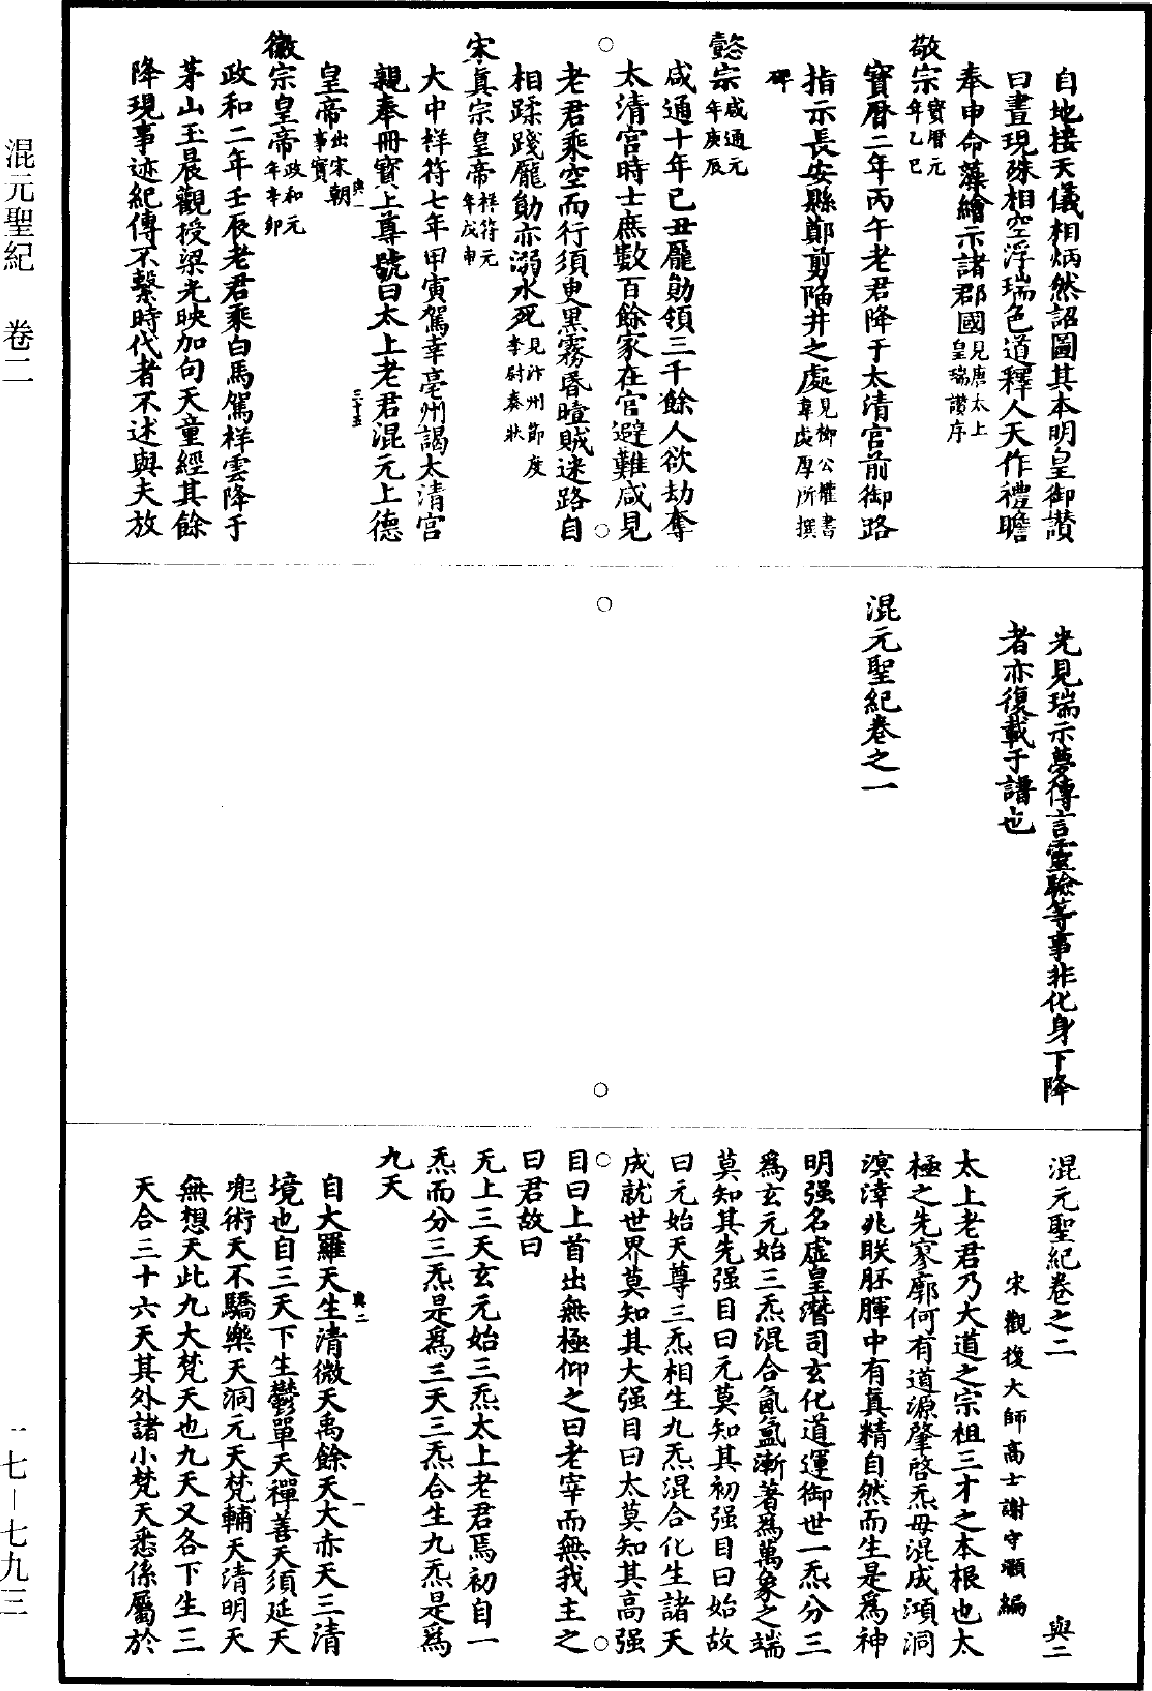 自地接天儀相炳然詔圖其本明皇御讃
曰畫現殊相空浮瑞色道釋人天作禮瞻
奉申命藻繪示諸郡國見唐太上皇瑞讃序
敬宗寶曆元年乙巳
寶曆二年丙午老君降于太清宮前御路
指示長安縣鄭剪陷井之處見柳公權書韋處厚所撰
碑
懿宗咸通元年庚辰
咸通十年己丑龐勛領三千餘人欲劫奪
太清宮時士庶數百餘家在宮避難咸見
老君乘空而行須臾黑霧昏曀賊迷路自
相蹂踐龐勛亦溺水死見汴州節度李尉奏狀
宋真宗皇帝祥符元年戊申
大中祥符七年甲寅駕幸亳州謁太清宮
親奉冊寶上尊號曰太上老君混元上德
皇帝出宋朝事實
與一
三十五
徽宗皇帝政和元年辛卯
政和二年壬辰老君乘白馬駕祥雲降于
茅山玉晨觀授梁光映加句天童經其餘
降現事迹紀傳不繫時代者不述與夫放
光見瑞示夢傳言靈驗等事非化身下降
者亦復載于譜也
混元聖紀卷之一
混元聖紀卷之二
與二
宋觀復大師高士謝守灝編
太上老君乃大道之宗祖三才之本根也太
極之先寥廓何有道源肇啓炁母混成澒洞
溟涬兆朕胚腪中有真精自然而生是為神
明强名虛皇潛司玄化道運御世一炁分三
為玄元始三炁混合氤氳漸著為萬象之端
莫知其先强目曰元莫知其初强目曰始故
曰元始天尊三炁相生九炁混合化生諸天
成就世界莫知其大强目曰太莫知其高强
目曰上首出無極仰之曰老宰而無我主之
曰君故曰
无上三天玄元始三炁太上老君焉初自一
炁而分三炁是為三天三炁合生九炁是為
九天
自大羅天生清微天禹餘天大赤天三清
與二
一
境也自三天下生鬱單天禪善天須延天
兜術天不驕樂天洞元天梵輔天清明天
無想天此九大梵天也九天又各下生三
天合三十六天其外諸小梵天悉係屬於
混元聖紀 卷二
一七—七九三